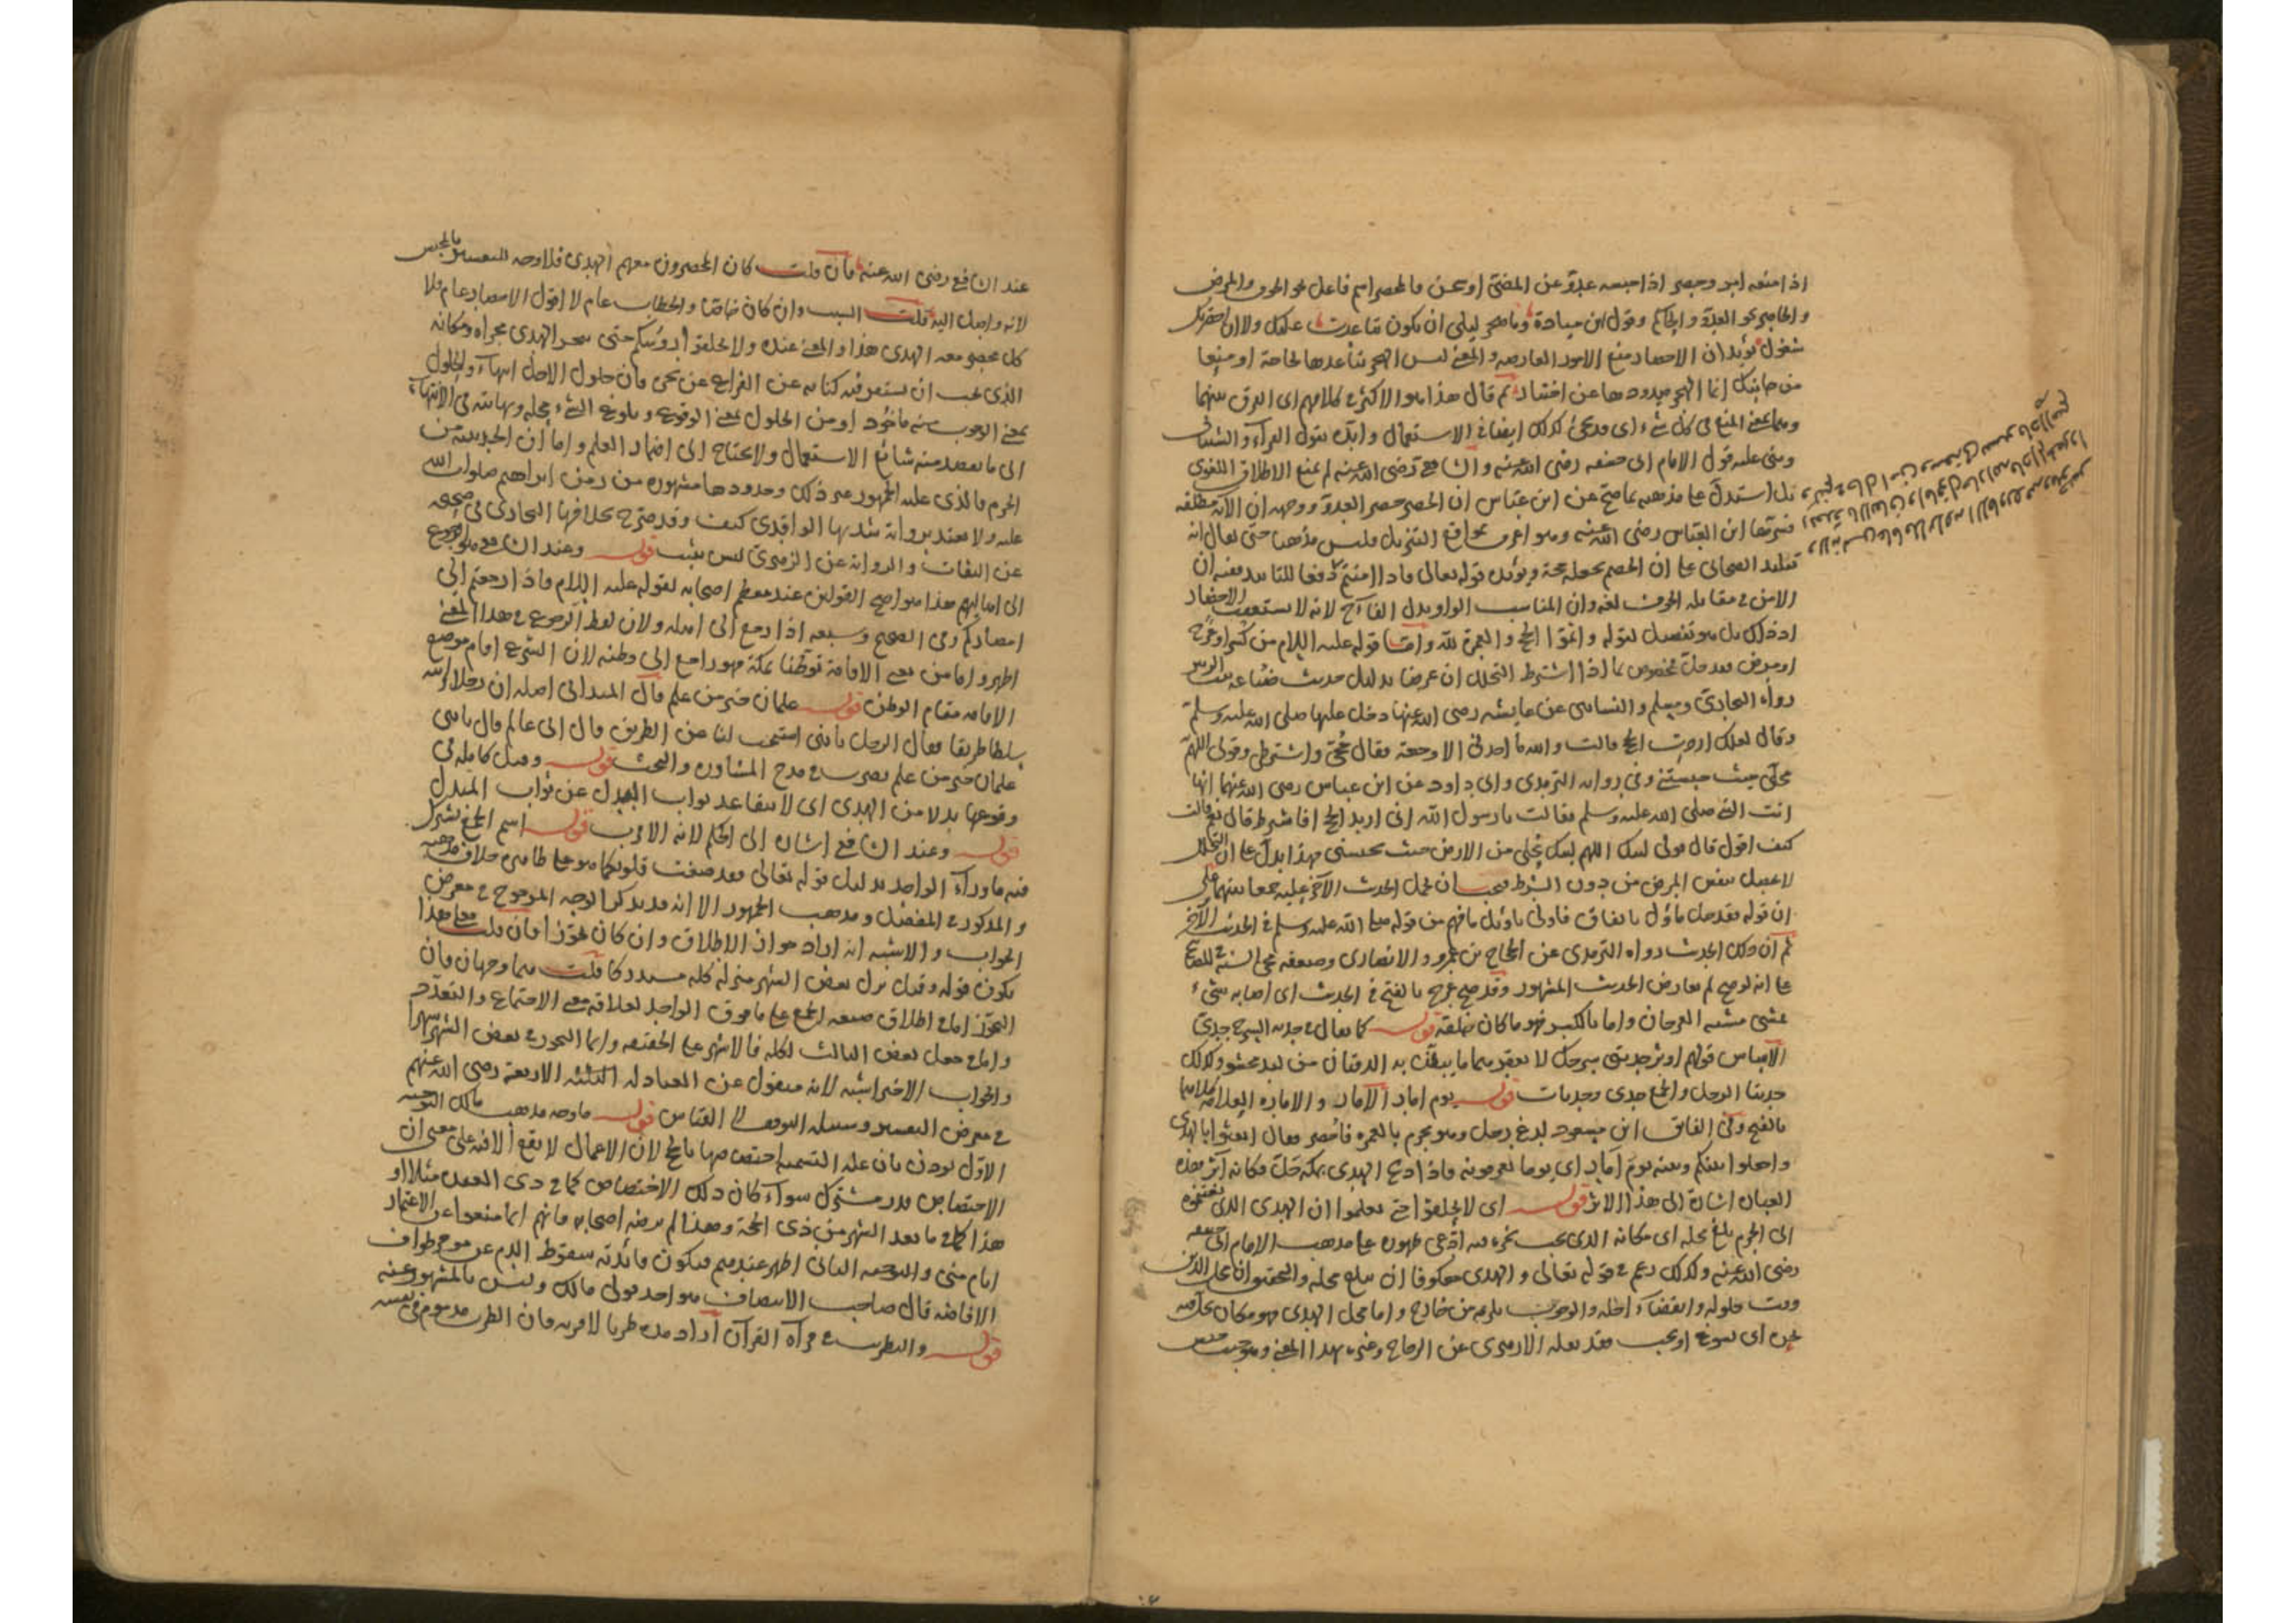 اذا منعه امر وحصر اذا حبسه عدوّ عن المضىّ او سجن فالمحصر اسم فاعل نحو الخوف والمرض
والحاصر نحو العدوّ والحاكم وقول ابن ميادة وما هجر ليلى ان تكون تباعدت عليك ولا ان احصرتك
شغول يؤيد ان الاحصار منع الامور العارضة والمعنى ليس الهجر تباعدها لحاجة او منعها
من جانبك انما الهجر صدودها عن اختيار ثم قال هذا هو الاكثر فى كلامهم اى الفرق بينهما
وهما بمعنى المنع فى كل شىء اى قد يجئ كذلك ايضا فى الاستعمال وايّده بقول الفرآء والشيبانى
وبنى عليه قول الامام ابى حنيفه رضى الله عنه والشافعى رضى الله عنه لم يمنع الاطلاق اللغوى
بل استدلّ على مذهبه بما صح عن ابن عباس ان لا حصر الا حصر العدوّ ووجهه ان الآية مطلقه
فسرها ابن العباس رضى الله عنه وهو اعرف بمواقع التنزيل وليس مذهبا حتى يقال انه
تقليد الصحابى على ان الخصم يجعله حجة ويؤيده قوله تعالى فاذا امنتم دفعا للتاييد بمعنى ان
الامن فى مقابله الخوف لغة وان المناسب الواو بدل الفآء لانه لا يستعقب الاحصار
اذ ذاك بل هو تفصيل لقوله واتموا الحج والعمرة لله وامّا قوله عليه السلام من كسر او عرج
او مرض فقد حلّ مخصوص بما اذا اشترط التحلل ان عرضا بدليل حديث ضباعة بنت الزبير
رواه البخارى ومسلم والنسائى عن عايشه رضى الله عنها دخل عليها صلى الله عليه وسلم
وقال لعلك اردت الحج قالت والله ما اجدنى الا وجعة فقال حجّى واشترطى وقولى اللهم
محلّى حيث حبستنى وفى رواية الترمذى وابى داود عن ابن عباس رضى الله عنهما انها
اتت النبى صلى الله عليه وسلم فقالت يا رسول الله انى اريد الحج افاشترط قال نعم قالت
كيف اقول قال قولى لبيك اللهم لبيك محلّى من الارض حيث تحبسنى فهذا يدلّ على ان التحلل
لا يحصل بنفس المرض من دون الشرط فيجب ان يحمل الحديث الآخر عليه جمعا بينهما على
ان قوله فقد حل مأوّل بالاتفاق فاولى تاويل ما فهم من قوله صلى الله عليه وسلم فى الحديث الآخر
ثم ان ذلك الحديث رواه الترمذى عن الحجاج بن عمرو الانصارى وضعفه محى السنة فى المصابيح
على انه لو صح لم يعارض الحديث المشهور وقد صح عرج بالفتح فى الحديث اى اصابه شىء
فمشى مشية العرجان واما بالكسر فهو ما كان خلقة قوله كما يقال فى جدية السرج جدى
الاساس قولهم اوثر جديتى سرجك لا يعقر بهما ما يبطّن به الدفتان من لبد محشو وكذلك
جديتا الرحل والجمع جدى وجديات قوله يوم امار الامار والامارة العلامة كلاهما
بالفتح وفى الفائق ابن مسعود لدغ رجل وهو محرم بالعمرة فاحصر فقال ابعثوا بالهدى
واجعلوا بينكم وبينه يوم امار اى يوما تعرفونه فاذا ذبح الهدى بمكة حلّ فكانه آثر هذه
العبارة اشارة الى هذا الاثر قوله اى لا تحلقوا حتى تعلموا ان الهدى الذى بعثتموه
الى الحرم بلغ محله اى مكانه الذى يجب نحره فيه ادّعى ظهوره على مذهب الامام ابى حنيفه
رضى الله عنه وكذلك زعم فى قوله تعالى والهدى معكوفا ان يبلغ محله والتحقيق ان محل الدين
وقت حلوله وانقضآء اجله والوجوب يلزمه من خارج واما محل الهدى فهو مكان يحل فيه
نحره اى يسوغ او يجب فقد نقله الازهرى عن الزجاج وغيره بهذا المعنى وهو حيث حبس
عند الشافعى رضى الله عنه فان قلت كان المحصرون معهم الهدى فلا وجه للتفسير بالحبس
لانه واصل اليه قلت السبب وان كان خاصّا والخطاب عام لا اقول الاحصار عام فلا
كل محصر معه الهدى هذا والمعنى عنده ولا تحلقوا رؤسكم حتى ينحر الهدى مجراه ومكانه
الذى يجب ان يستقر فيه كناية عن الفراغ عن نحره فان حلول الاجل انتهآء والحلول
بمعنى الوجوب منه مأخوذ او من الحلول بمعنى الوقوع وبلوغ الشىء محله ونهايته فى الانتهآء
الى ما يقصد منه شائع الاستعمال ولا يحتاج الى اضمار العلم واما ان الحديبية من
الحرم فالذى عليه الجمهور غير ذلك وحدودها مشهورة من زمن ابراهيم صلوات الله
عليه ولا يعتد برواية شذ بها الواقدى كيف وقد صرح بخلافها البخارى فى صحيحه
عن الثقات والرواية عن الزهرى ليس بثبت قوله وعند الشافعى هو الرجوع
الى اهاليهم هذا هو اصح القولين عند معظم اصحابه لقوله عليه السلام فاذا رجعتم الى
امصاركم وفى الصحيح وسبعة اذا رجع الى اهله ولان لفظ الرجوع فى هذا المعنى
اظهر واما من نوى الاقامة توطّنا بمكة فهو راجع الى وطنه لان الشرع اقام موضع
الاقامه مقام الوطن قوله علمان خير من علم قال الميدانى اصله ان رجلا وابنه
سلكا طريقا فقال الرجل يا بنى استبحث لنا عن الطريق قال انى عالم قال يا بنى
علمان خير من علم يضرب فى مدح المشاورة والبحث قوله وقيل كاملة فى
وقوعها بدلا من الهدى اى لا يتقاعد ثواب البدل عن ثواب المبدل
قوله وعند الشافعى اشارة الى الحكم لانه الاقرب قوله اسم الجمع يشترك
فيه ما ورآء الواحد بدليل قوله تعالى فقد صغت قلوبكما هو على ظاهره خلاف مذهبه
والمذكور فى المفصل ومذهب الجمهور الا انه قد يذكر الوجه المرجوح فى معرض
الجواب والاشبه انه اراد جواز الاطلاق وان كان تجوّزا فان قلت فعلى هذا
يكون قوله وقيل نزل بعض الشهر منزلة كله مستدركا قلت هما وجهان فان
التجوّز اما فى اطلاق صيغة الجمع على ما فوق الواحد لعلاقة معنى الاجتماع والتعدد
واما فى جعل بعض الثالث كله فالاشهر على الحقيقه وانما التجوز فى بعض الشهر شهرا
والجواب الاخير اشبه لانه منقول عن العبادلة الثلثة الاربعة رضى الله عنهم
فى معرض التفسير وسبيله التوقيف لا القياس قوله ما وجه مذهب مالك التوجيه
الاوّل يؤذن بان علة التسمية اختصاصها بالحج لان الاعمال لا يقع الا فيه على معنى ان
الاختصاص قدر مشترك سوآء كان ذلك الاختصاص كما فى ذى القعدة مثلا او
هذا كما فى ما بعد العشر من ذى الحجة وهذا لم يرضه اصحابه فانهم انما منعوا عن الاعتمار
ايام منى والتوجيه الثانى اظهر عندهم فيكون فائدته سقوط الدم عن مؤخر طواف
الافاضة قال صاحب الانتصاف هو احد قولى مالك وليس بالمشهور عنه
قوله والتطريب فى قرآءة القرآن اراد مده طربا لا قربة فان الطرب مذموم فى نفسه